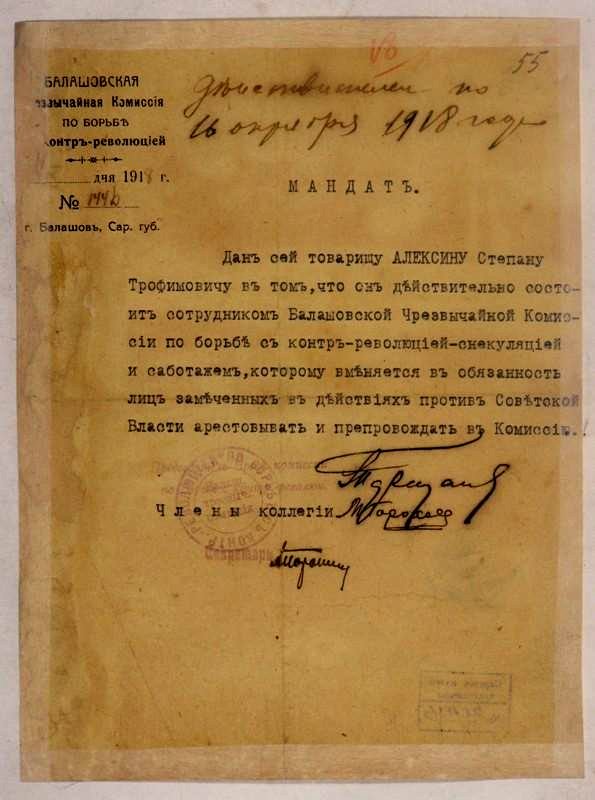 55
БАЛАШОВСКАЯ
Чрезвычайная Комиссія
ПО БОРЬБѢ
Контръ-революціей
дня 1918 г.
№ 1446
г. Балашовъ, Сар. губ.
Действителен по
16 октября 1918 года
МАНДАТЪ.
Данъ сей товарищу АЛЕКСИНУ Степану
Трофимовичу въ томъ,что онъ дѣйствительно состо-
итъ сотрудникомъ Балашовской Чрезвычайной Комис-
сіи по борьбѣ съ контръ-революціей-снекуляціей
и саботажемъ,которому вмѣняется въ обязанность
лицъ замѣченныхъ въ дѣйствіяхъ противъ Совѣтской
Власти арестовывать и препровождать въ Комиссію.
Члены коллегіи
Секретарь